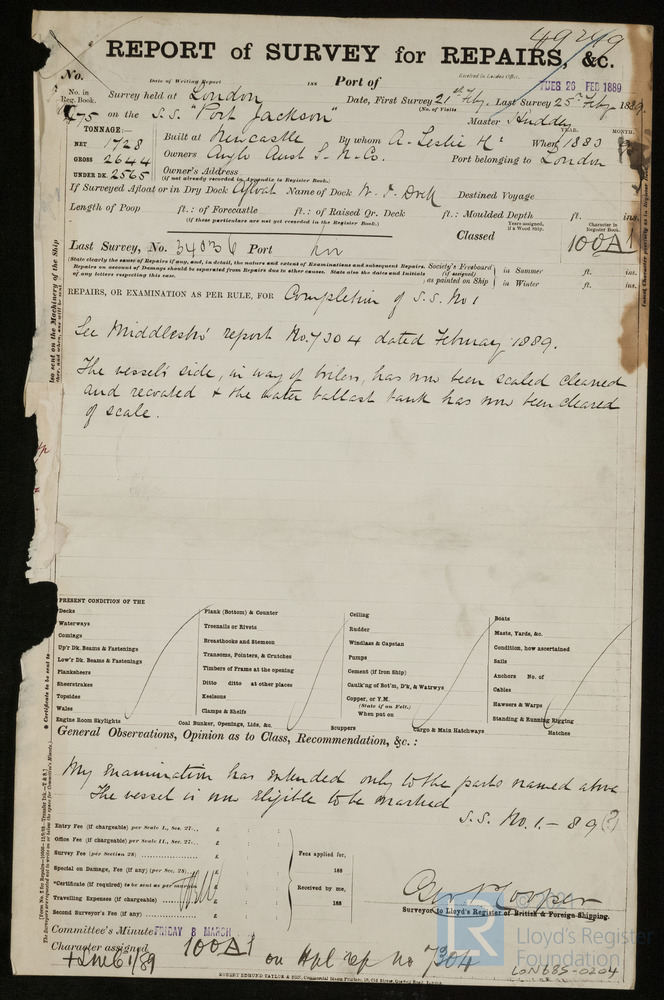 49249
REPORT of SURVEY for REPAIRS, &c.
No.
Date of Writing Report
188
Port of
Received in London Office,
TUES 26 FEB 1889
No. in Reg. Book.
Survey held at London
Date, First Survey 21st Feby. Last Survey 25th Feby. 1889.
(No. of Visits
475 on the S.S. "Port Jackson"
Master
TONNAGE:—
NET 1728
GROSS 2644
UNDER DK. 2565
Built at Newcastle By whom A. Leslie & Co When 1883
YEAR. MONTH.
Owners Anglo Aust S. N. Co. Port belonging to London
Owner's Address
(If not already recorded in Appendix to Register Book.)
If Surveyed Afloat or in Dry Dock Afloat Name of Dock W. I. Dock Destined Voyage
Length of Poop ft.: of Forecastle ft.: of Raised Qr. Deck ft.: Moulded Depth ft. ins.
(If these particulars are not yet recorded in the Register Book.)
Years assigned, if a Wood Ship.
Character in Register Book.
Classed 100A1
Last Survey, No. 34036 Port
(State clearly the cause of Repairs if any, and, in detail, the nature and extent of Examinations and subsequent Repairs.
Repairs on account of Damage should be separated from Repairs due to other causes. State also the dates and Initials
of any letters respecting this case.
Society's Freeboard (if assigned) as painted on Ship
in Summer ft. ins.
in Winter ft. ins.
REPAIRS, OR EXAMINATION AS PER RULE, FOR Completion of S.S. No 1
See Middlesbro' report No. 7304 dated February 1889.
The vessel's side, in way of boilers, has now been scaled cleaned
and recoated & the water ballast tank has now been cleared
of scale.
PRESENT CONDITION OF THE
Decks
Waterways
Comings
Up'r Dk. Beams & Fastenings
Low'r Dk. Beams & Fastenings
Planksheers
Sheerstrakes
Topsides
Wales
Engine Room Skylights
Plank (Bottom) & Counter
Treenails or Rivets
Breasthooks and Stemson
Transoms, Pointers, & Crutches
Timbers of Frame at the opening
Ditto ditto at other places
Keelsons
Clamps & Shelfs
Coal Bunker, Openings, Lids, &c.
Ceiling
Rudder
Windlass & Capstan
Pumps
Cement (if Iron Ship)
Caulk'ng of Bot'm, D'k, & Watrwys
Copper, or Y.M.
(State if on Felt.)
When put on
Scuppers
Cargo & Main Hatchways
Boats
Masts, Yards, &c.
Condition, how ascertained
Sails
Anchors No. of
Cables
Hawsers & Warps
Standing & Running Rigging
Hatches
General Observations, Opinion as to Class, Recommendation, &c.:
My Examination has extended only to the parts named above
The vessel is now Eligible to be marked
S.S. No. 1. - 89
Entry Fee (if chargeable) per Scale I., Sec. 27... £
Office Fee (if chargeable) per Scale II., Sec. 27... £
Survey Fee (per Section 28) £
Special on Damage, Fee (if any) (per Sec. 28) £
*Certificate (if required) to be sent as per margin £
Travelling Expenses (if chargeable) £
Second Surveyor's Fee (if any) £
Fees applied for,
188
Received by me,
188
Surveyor to Lloyd's Register of British & Foreign Shipping.
Committee's Minute FRIDAY 8 MARCH
Character assigned 100A1
on Hpl rep no 7304
© 2021
LR
Lloyd's Register
Foundation
LON685-0204